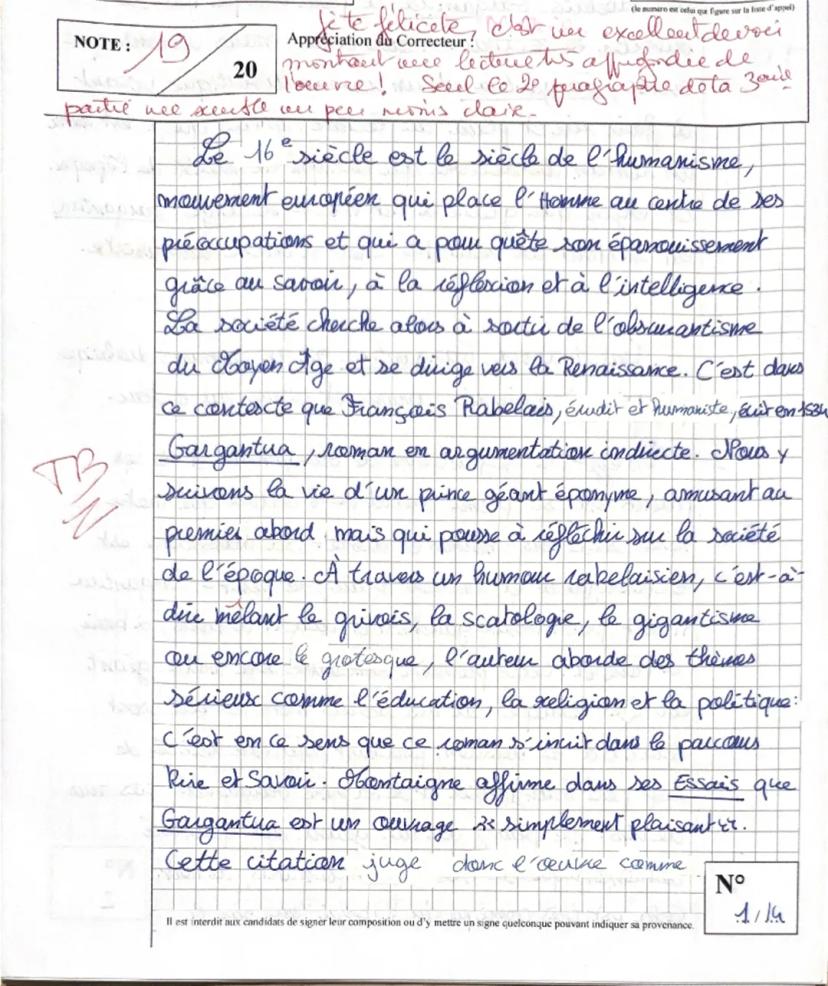 (le numéro est celui qui figure sur la liste d'appel)
NOTE : 19
20
Appréciation du Correcteur :
je te félicite, c'est un excellent devoir
montrant une lecture très approfondie de
l'oeuvre ! Seul le 2e paragraphe de ta 3eme
partie me semble un peu moins claire.
Le 16e siècle est le siècle de l'humanisme,
mouvement européen qui place l'Homme au centre de ses
préoccupations et qui a pour quête son épanouissement
grâce au savoir, à la réflexion et à l'intelligence.
La société cherche alors à sortir de l'obscurantisme
du Moyen Age et se dirige vers la Renaissance. C'est dans
ce contexte que François Rabelais, érudit et humaniste, écrit en 1534
Gargantua, roman en argumentation indirecte. Nous y
suivons la vie d'un prince géant éponyme, amusant au
premier abord mais qui pousse à réfléchir sur la société
de l'époque. À travers un humour rabelaisien, c'est-à-
dire mêlant le grivois, la scatologie, le gigantisme
ou encore le grotesque, l'auteur aborde des thèmes
sérieux comme l'éducation, la religion et la politique :
C'est en ce sens que ce roman s'incrit dans le parcours
Rire et Savoir. Montaigne affirme dans ses Essais que
Gargantua est un ouvrage « simplement plaisant ».
Cette citation juge donc l'œuvre comme
TB
N°
1/14
Il est interdit aux candidats de signer leur composition ou d'y mettre un signe quelconque pouvant indiquer sa provenance.